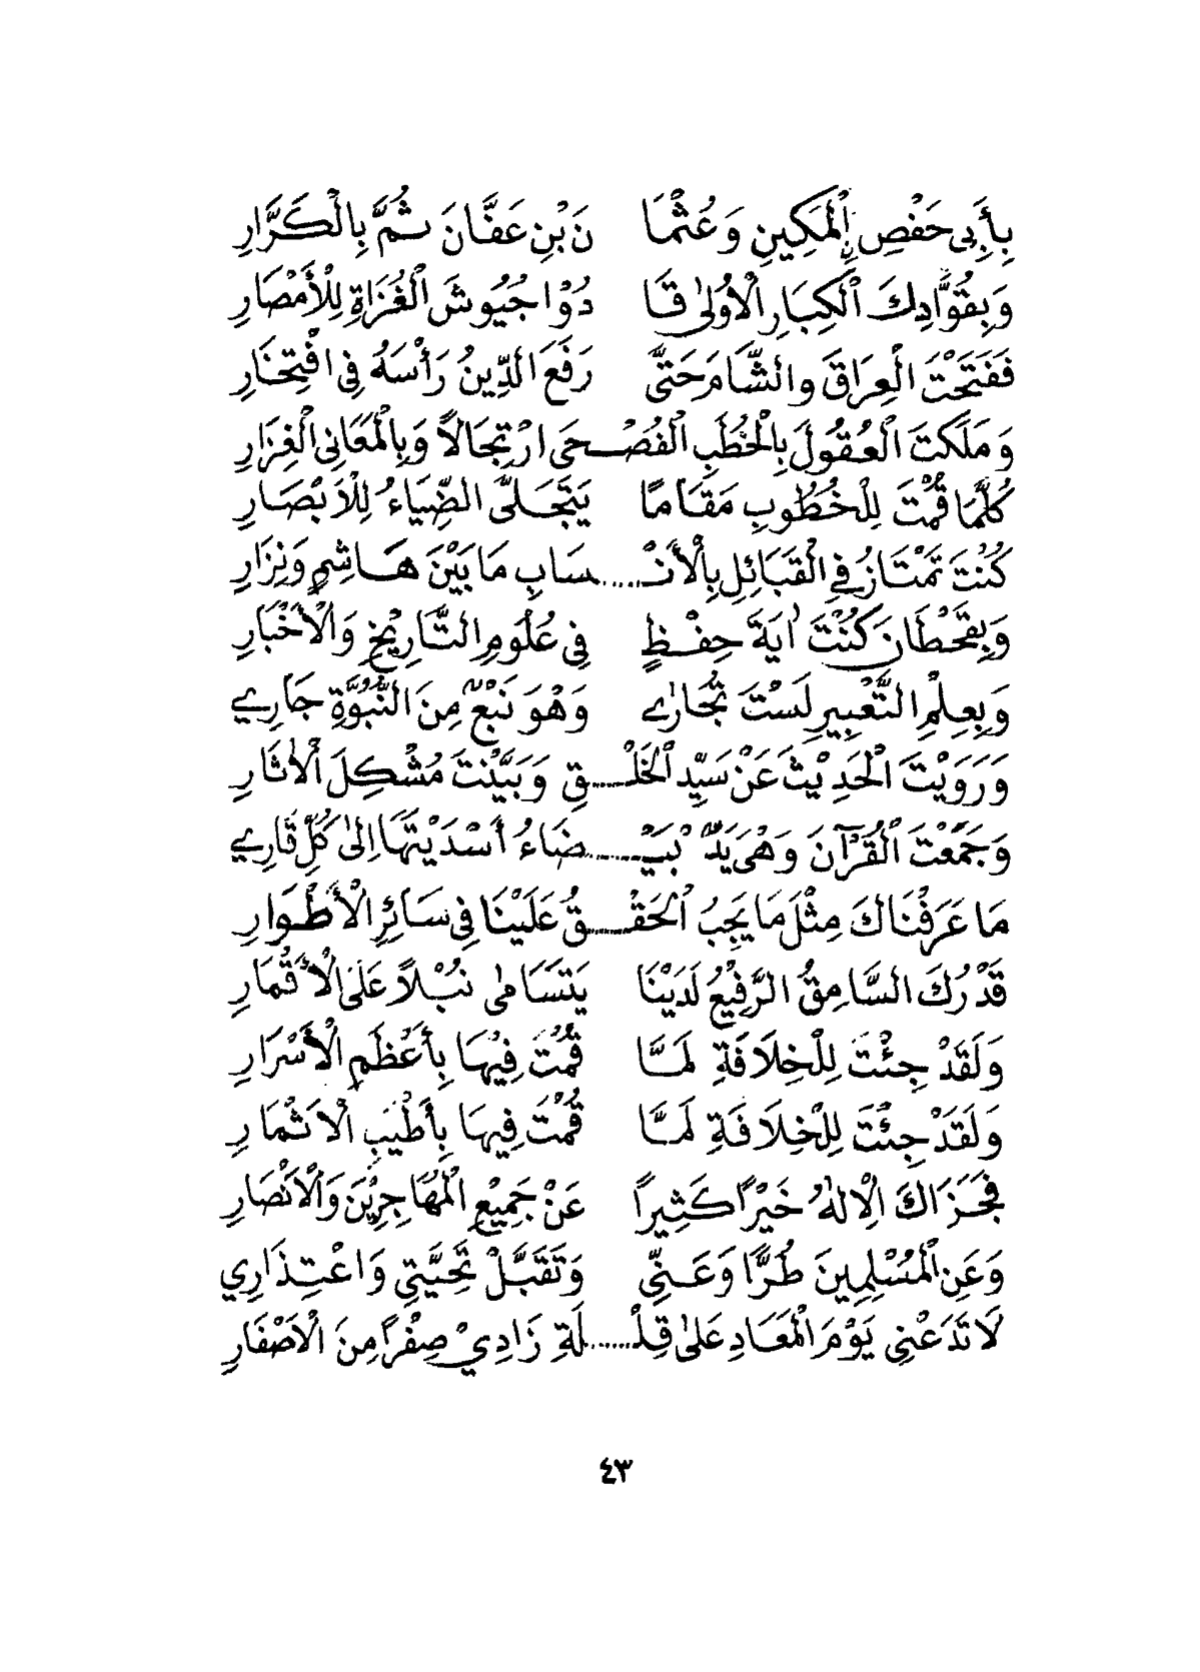 بِأَبِي حَفْصِ الْمَكِينِ وَعُثْمَا نَ بْنِ عَفَّانَ ثُمَّ بِالْكَرَّارِ
وَبِقُوَّادِكَ الْكِبَارِ الْأُولَىٰ قَا دُوْا جُيُوشَ الْغُزَاةِ لِلْأَمْصَارِ
فَفَتَحْتَ الْعِرَاقَ والشَّامَ حَتَّى رَفَعَ الدِّينُ رَأْسَهُ فِي افْتِخَارِ
وَمَلَكتَ الْعُقُولَ بِالْخُطَبِ الْفُصْحَى ارْتِجَالاً وَبِالْمَعَانِي الْغِزَارِ
كُلَّمَا قُمْتَ لِلْخُطُوبِ مَقَامًا يَتَجَلَّى الضِّيَاءُ لِلْاَبْصَارِ
كُنْتَ تَمْتَازُ فِي الْقَبَائِلِ بِالْأَنْـ.....ـسَابِ مَا بَيْنَ هَاشِمٍ وَنِزَارِ
وَبِقَحْطَانَ كُنْتَ اٰيَةَ حِفْظٍ فِي عُلُومِ التَّارِيْخِ وَالْأَخْبَارِ
وَبِعِلْمِ التَّعْبِيرِ لَسْتَ تُجَارٰى وَهْوَ نَبْعٌ مِنَ النُّبُوَّةِ جَارِي
وَرَوَيْتَ الْحَدِيْثَ عَنْ سَيِّدِ الْخَلْـقِ وَبَيَّنْتَ مُشْكِلَ الْاٰثَارِ
وَجَمَعْتَ الْقُرْآنَ وَهْىَ يَدٌ بَيْـ.....ـضَاءُ أَسْدَيْتَهَا اِلىٰ كُلِّ قَارِي
مَا عَرَفْنَاكَ مِثْلَ مَا يَجِبُ الْحَقْـقُ عَلَيْنَا فِي سَائِرِ الْأَطْوَارِ
قَدْرُكَ السَّامِقُ الرَّفِيْعُ لَدَيْنَا يَتَسَامىٰ نُبْلاً عَلَى الْأَقْمَارِ
وَلَقَدْ جِئْتَ لِلْخِلَافَةِ لَمَّا قُمْتَ فِيْهَا بِأَعْظَمِ الْأَسْرَارِ
وَلَقَدْ جِئْتَ لِلْخِلَافَةِ لَمَّا قُمْتَ فِيهَا بِأَطْيَبِ الْاَثْمَارِ
فَجَزَاكَ الْاِلٰهُ خَيْرًا كَثِيرًا عَنْ جَمِيْعِ الْمُهَاجِرِيْنَ وَالْاَنْصَارِ
وَعَنِ الْمُسْلِمِينَ طُرًّا وَعَنِّي وَتَقَبَّلْ تَحِيَّتِي وَاعْتِذَارِي
لَا تَدَعْنِي يَوْمَ الْمَعَادِ عَلىٰ قِلْـ.....ـلَةِ زَادِيْ صِفْرًا مِنَ الْاَصْفَارِ
٤٣